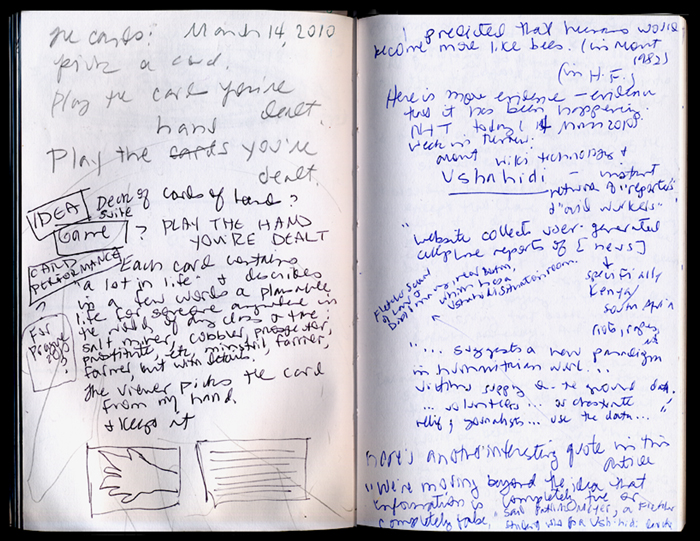 March 14, 2010
pick a card.
Play the card you're
dealt.
hand
Play the cards you're
dealt.
IDEA Deck of cards of hand?
suite
Game ? PLAY THE HAND
YOU'RE DEALT
CARD
PERFORMANCE
?
For
2010
Each card contains
"a lot in life" & describes
in a few words a plausible
life for someone anywhere in
the world of any class & time:
salt miner, cobbler,
prostitute, etc, minstrel, farrier,
farmer, but with details.
The viewer picks the card
from my hand.
& keeps it
I predicted that humans would
become more like bees. (in Mont
1982)
(in H.F.)
Here is more evidence – evidence
that it has been happening.
NYT today (14 March 2010)
Week in Review.
about wiki technology &
Ushahidi – instant
network of "reporters"
& "aid workers"
"website collects user-generated
cellphone reports of [news]
specifically
Kenya/
South Africa
riots, rapes,
etc
Fletcher School
of Law &
Diplomacy, near Boston,
which has a
Ushahidi situation room.
"... suggests a new paradigm
in humanitarian work...
victims supply on-the-ground data.
... volunteers...
relief, & journalists... use the data..."
Here's another interesting quote in this
article
"We're moving beyond the idea that
information is completely true or
completely false," said Patrick Meier, a Fletcher
student who for Ushahidi